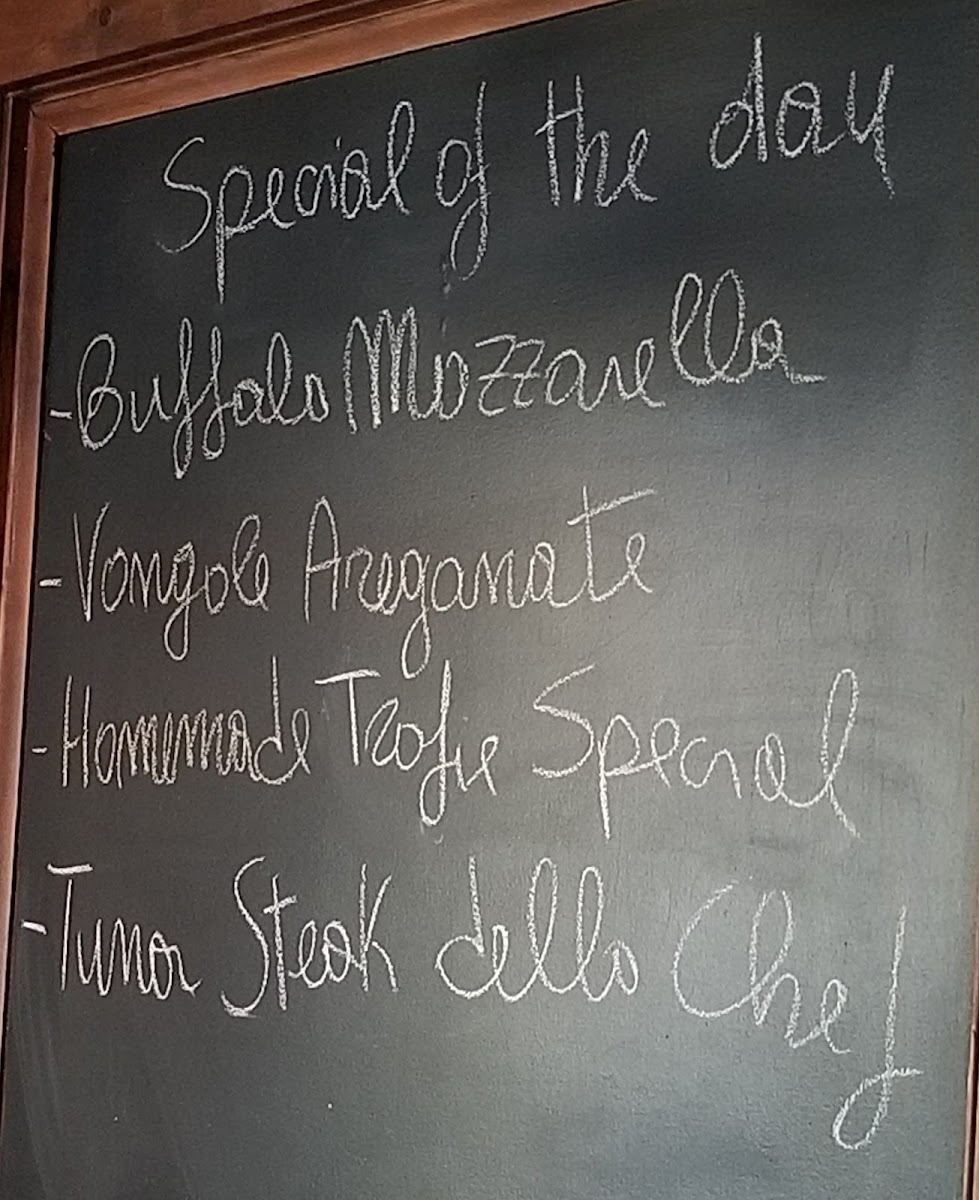 Special of the day
-Buffalo Mozzarella
-Vongole Areganate
-Homemade Trofie Special
-Tuna Steak dello Chef